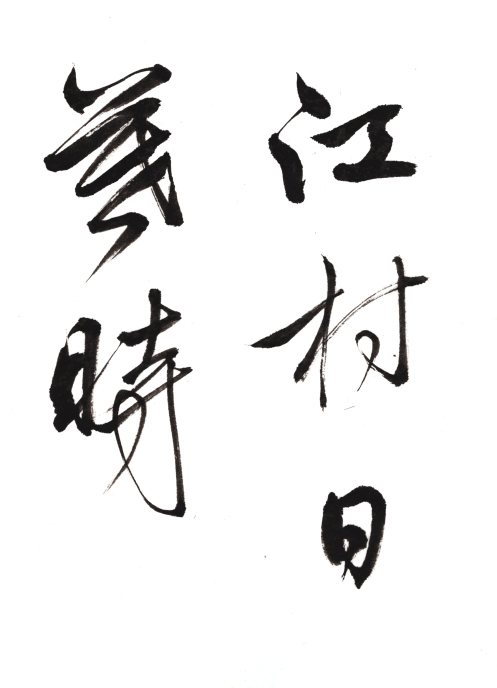 江村日
暮時